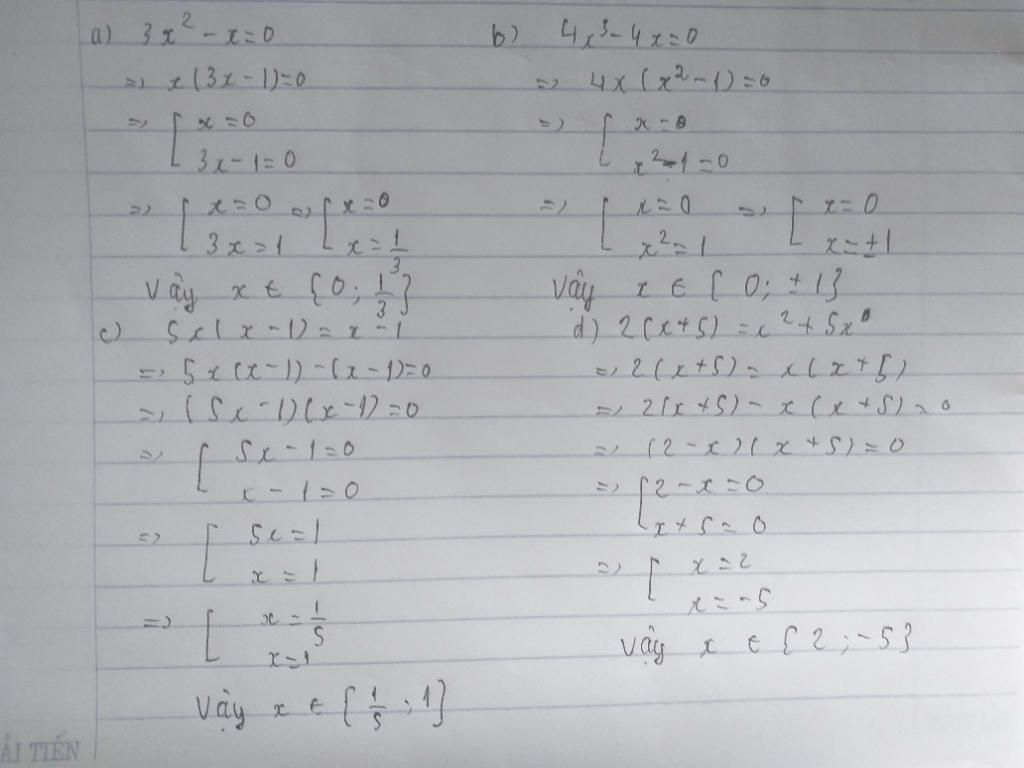 a) 3x² - x = 0
=> x(3x - 1) = 0
=> [ x = 0
3x - 1 = 0
=> [ x = 0 => [ x = 0
3x = 1 x = 1/3
Vậy x ∈ {0; 1/3}
b) 4x³ - 4x = 0
=> 4x(x² - 1) = 0
=> [ x = 0
x² - 1 = 0
=> [ x = 0 => [ x = 0
x² = 1 x = ±1
Vậy x ∈ { 0; ±1}
c) 5x(x - 1) = x - 1
=> 5x(x - 1) - (x - 1) = 0
=> (5x - 1)(x - 1) = 0
=> [ 5x - 1 = 0
x - 1 = 0
=> [ 5x = 1
x = 1
=> [ x = 1/5
x = 1
Vậy x ∈ {1/5; 1}
d) 2(x + 5) = x² + 5x
=> 2(x + 5) = x(x + 5)
=> 2(x + 5) - x(x + 5) = 0
=> (2 - x)(x + 5) = 0
=> [ 2 - x = 0
x + 5 = 0
=> [ x = 2
x = -5
Vậy x ∈ {2; -5}
ẢI TIẾN